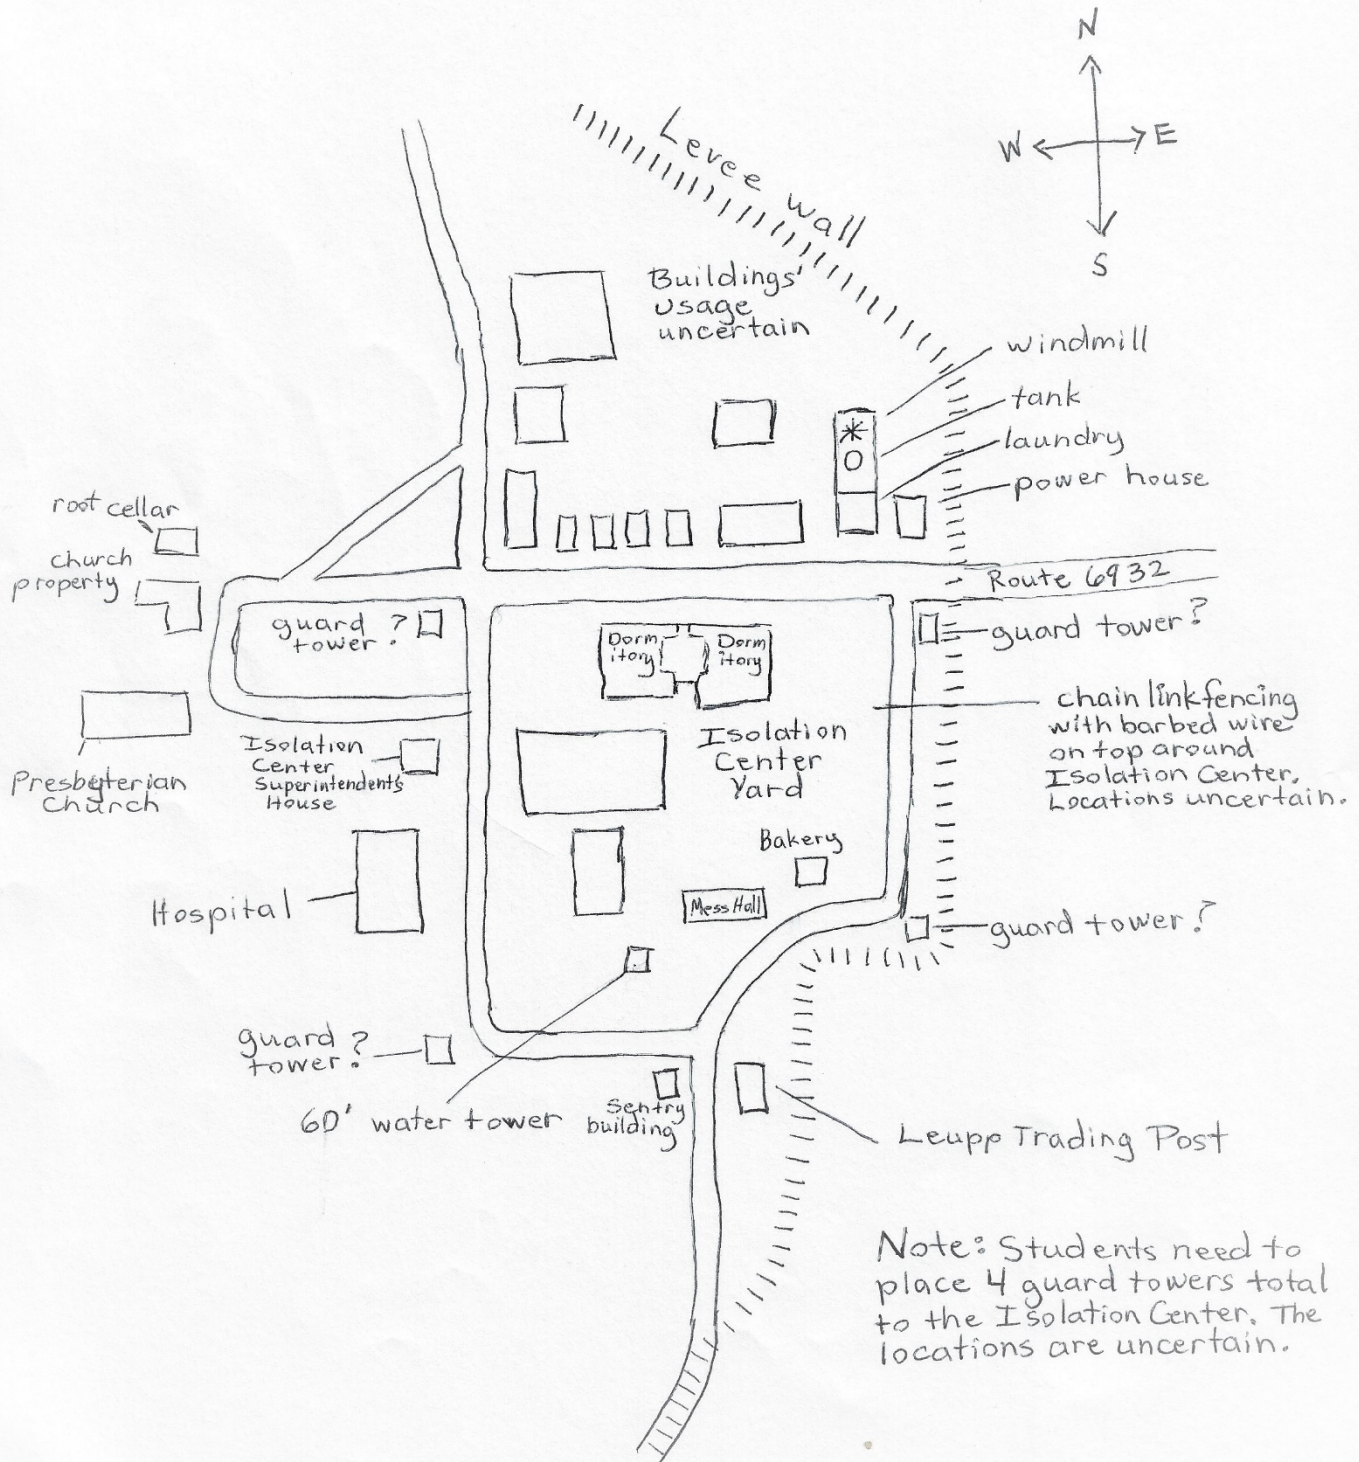 N
W
E
S
Levee wall
Buildings'
usage
uncertain
windmill
tank
laundry
power house
root cellar
church
property
Route 6932
guard ?
tower
Dorm
itory
Dorm
itory
guard tower?
chain link fencing
with barbed wire
on top around
Isolation Center.
Locations uncertain.
Isolation
Center
Yard
Isolation
Center
Superintendent's
House
Presbyterian
Church
Bakery
Mess Hall
Hospital
guard tower?
guard ?
tower
60' water tower
Sentry
building
Leupp Trading Post
Note: Students need to
place 4 guard towers total
to the Isolation Center. The
locations are uncertain.